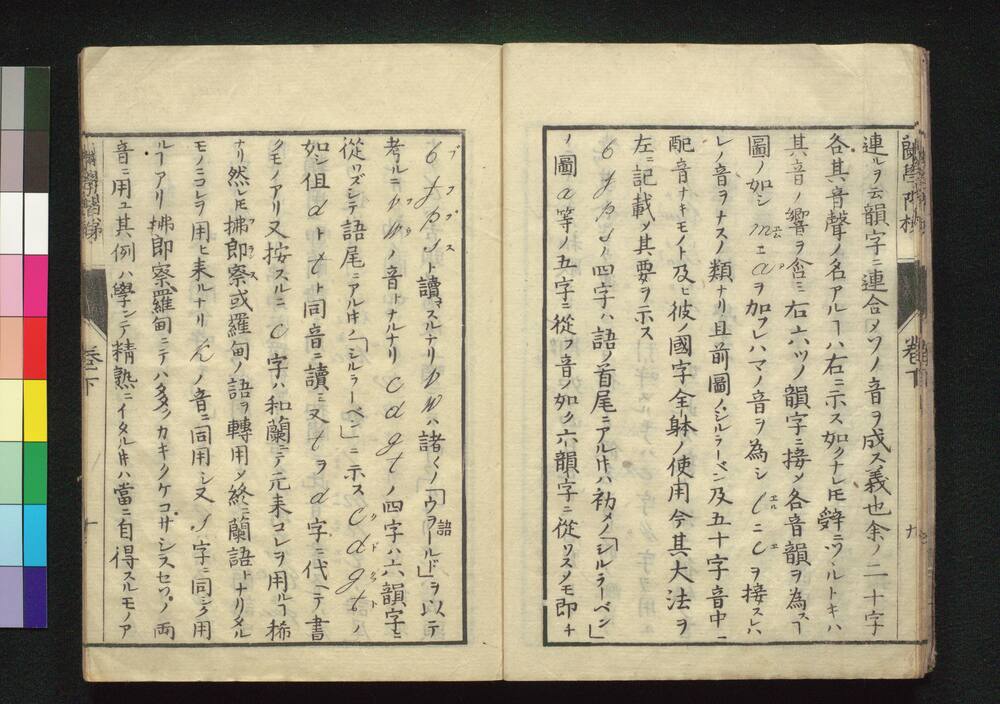 連ルヲ云韻字ニ連合メソノ音ヲ成ス義也余ノ二十字
各其音聲ノ名アルヿハ右ニ示ス如クナレ𪜈辭ニツヾルトキハ
其音ノ響ヲ含ミ右六ツノ韻字ニ接メ各音韻ヲ為スヿ
圖ノ如シ mエムニaアヲ加フレハマノ音ヲ為シ lエルニeエヲ接スレハ
レノ音ヲナスノ類ナリ且前圖ノシルラーベン及五十字音中ニ
配音ナキモノト及ヒ彼ノ國字全躰ノ使用今其大法ヲ
左ニ記載メ其要ヲ示ス
b f p s ノ四字ハ語ノ首尾ニアル𪜈ハ初メノ「シルラーベン」
ノ圖a等ノ五字ニ從フ音ノ如ク六韻字ニ從ワスメモ即チ
bブfフpプsスト讀マスルナリ v w ハ諸〻ノ「ウヲールド」語ヲ以テ
考ルニ v w ノ音トナルナリ c d g t ノ四字ハ六韻字ニ
從ワズシテ語尾ニアル𪜈ノ「シルラーベン」ニ示スcクdドgグtトノ
如シ但d ト t ト同音ニ讀ミ又 t ヲ d 字ニ代ヘテ書
クモノアリ又按スルニ c 字ハ和蘭ニテ元来コレヲ用ルヿ稀
ナリ然レ𪜈拂郎察フランス或羅甸ノ語ヲ轉用メ終ニ蘭語トナリタル
モノニコレヲ用ヒ来ルナリ k ノ音ニ同用シ又 s 字ニ同シク用
ルヿアリ拂郎察羅甸ニテハ多クカキクケコサシスセソノ両
音ニ用ユ其例ハ學ンテ精熟ニイタル𪜈ハ當ニ自得スルモノア
蘭學階梯
巻下
九
巻下
十